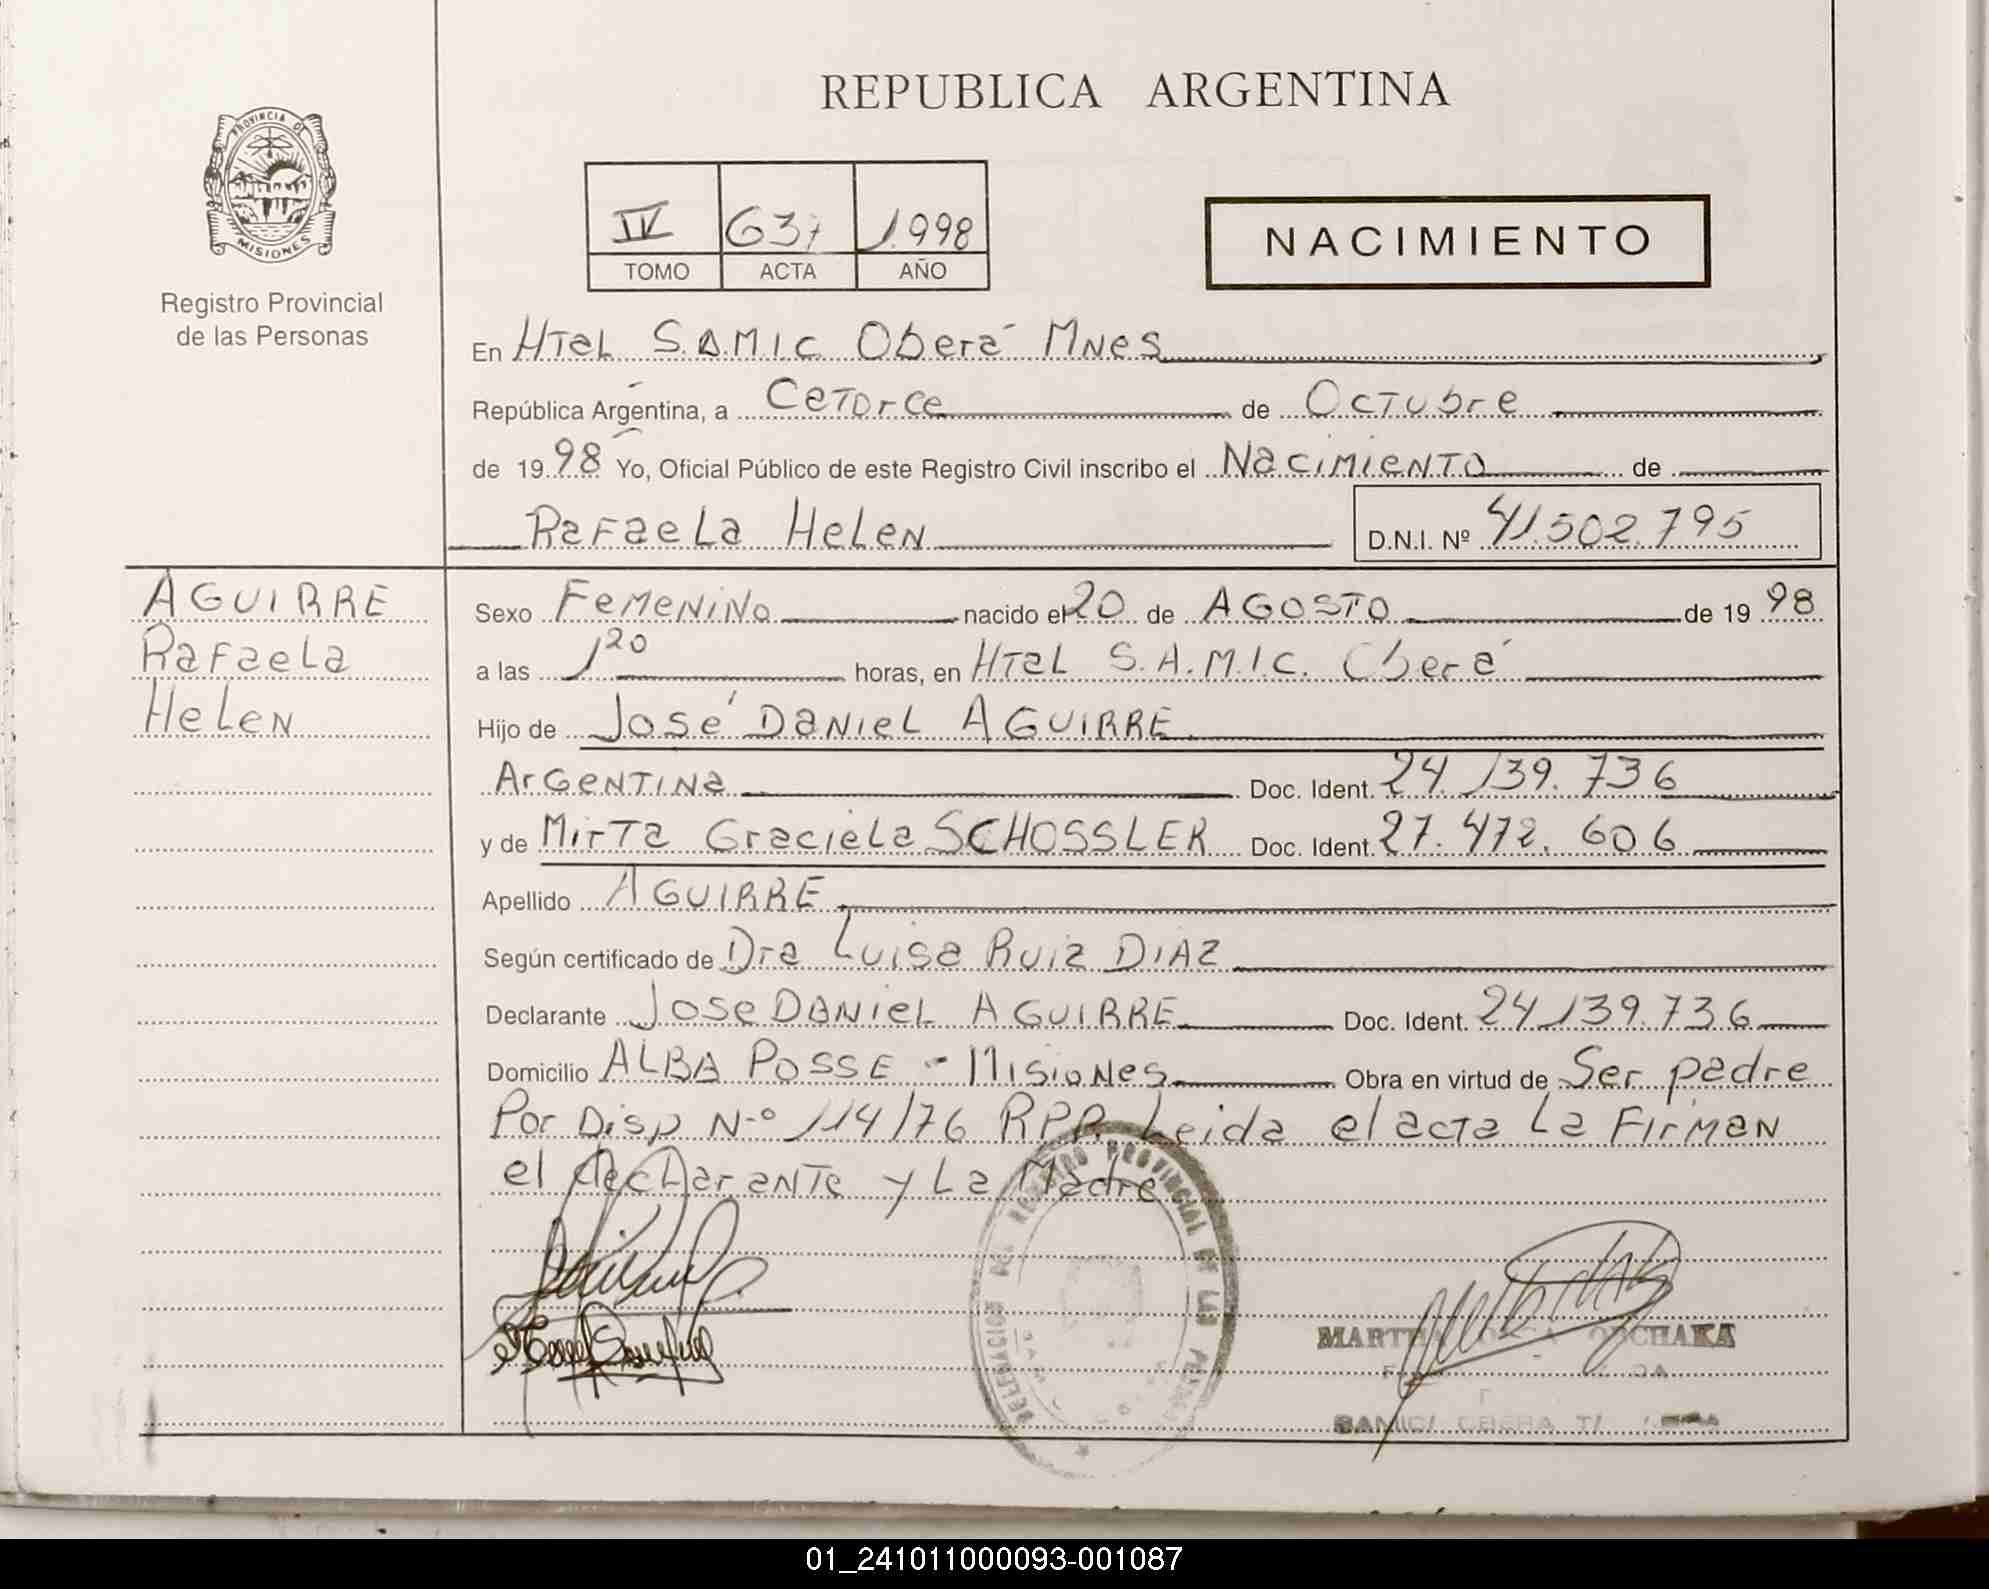 REPUBLICA ARGENTINA
PROVINCIA DE
MISIONES
Registro Provincial
de las Personas
IV 637 1.998
TOMO ACTA AÑO
NACIMIENTO
En Htal S.A.M.I.C Oberá Mnes
República Argentina, a Catorce de Octubre
de 19 98 Yo, Oficial Público de este Registro Civil inscribo el Nacimiento de
Rafaela Helen D.N.I. Nº 41.502.795
AGUIRRE
Rafaela
Helen
Sexo Femenino nacido el 20 de AGOSTO de 19 98
a las 1 20 horas, en Htal S.A.M.I.C. Oberá
Hijo de José Daniel AGUIRRE
Argentina Doc. Ident. 24.139.736
y de Mirta Graciela SCHOSSLER Doc. Ident. 27.472.606
Apellido AGUIRRE
Según certificado de Dra Luisa Ruiz DIAZ
Declarante Jose DANIEL AGUIRRE Doc. Ident. 24.139.736
Domicilio ALBA POSSE - Misiones Obra en virtud de Ser padre
Por Disp N-º 114/76 RPP. Leida el acta La Firman
el declarante y La Madre
DELEGACION DEL REGISTRO PROVINCIAL DE LAS
MARTHA
01_241011000093-001087